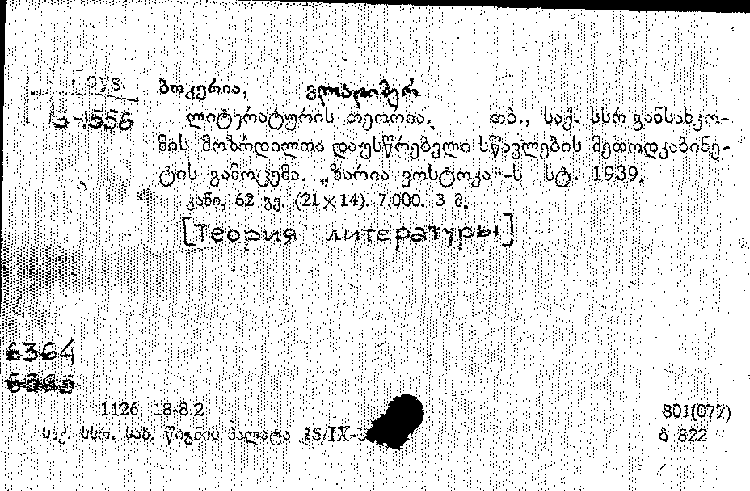 ბოკერია, ვლადიმერ
ლიტერატურის თეორია. თბ., საქ. სსრ განსახკო-
მის მოზრდილთა დაუსწრებელი სწავლების მეთოდკაბინე-
ტის გამოცემა. „ზარია ვოსტოკა"-ს სტ. 1939.
კანი, 62 გვ. (21×14). 7.000. 3 მ.
[Теория литературы]
6364
1126 18-8.2 801(077)
საქ. სსრ. სახ. წიგნის პალატა 15/IX- ბ 822